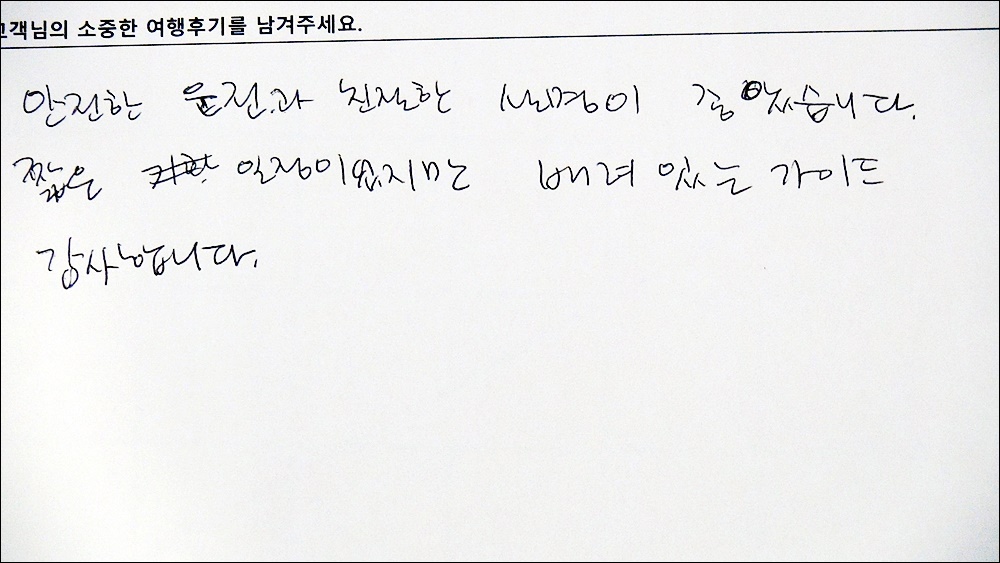 고객님의 소중한 여행후기를 남겨주세요.
안전한 운전과 친절한 설명이 좋았습니다.
짧은 일정이었지만 배려 있는 가이드
감사합니다.